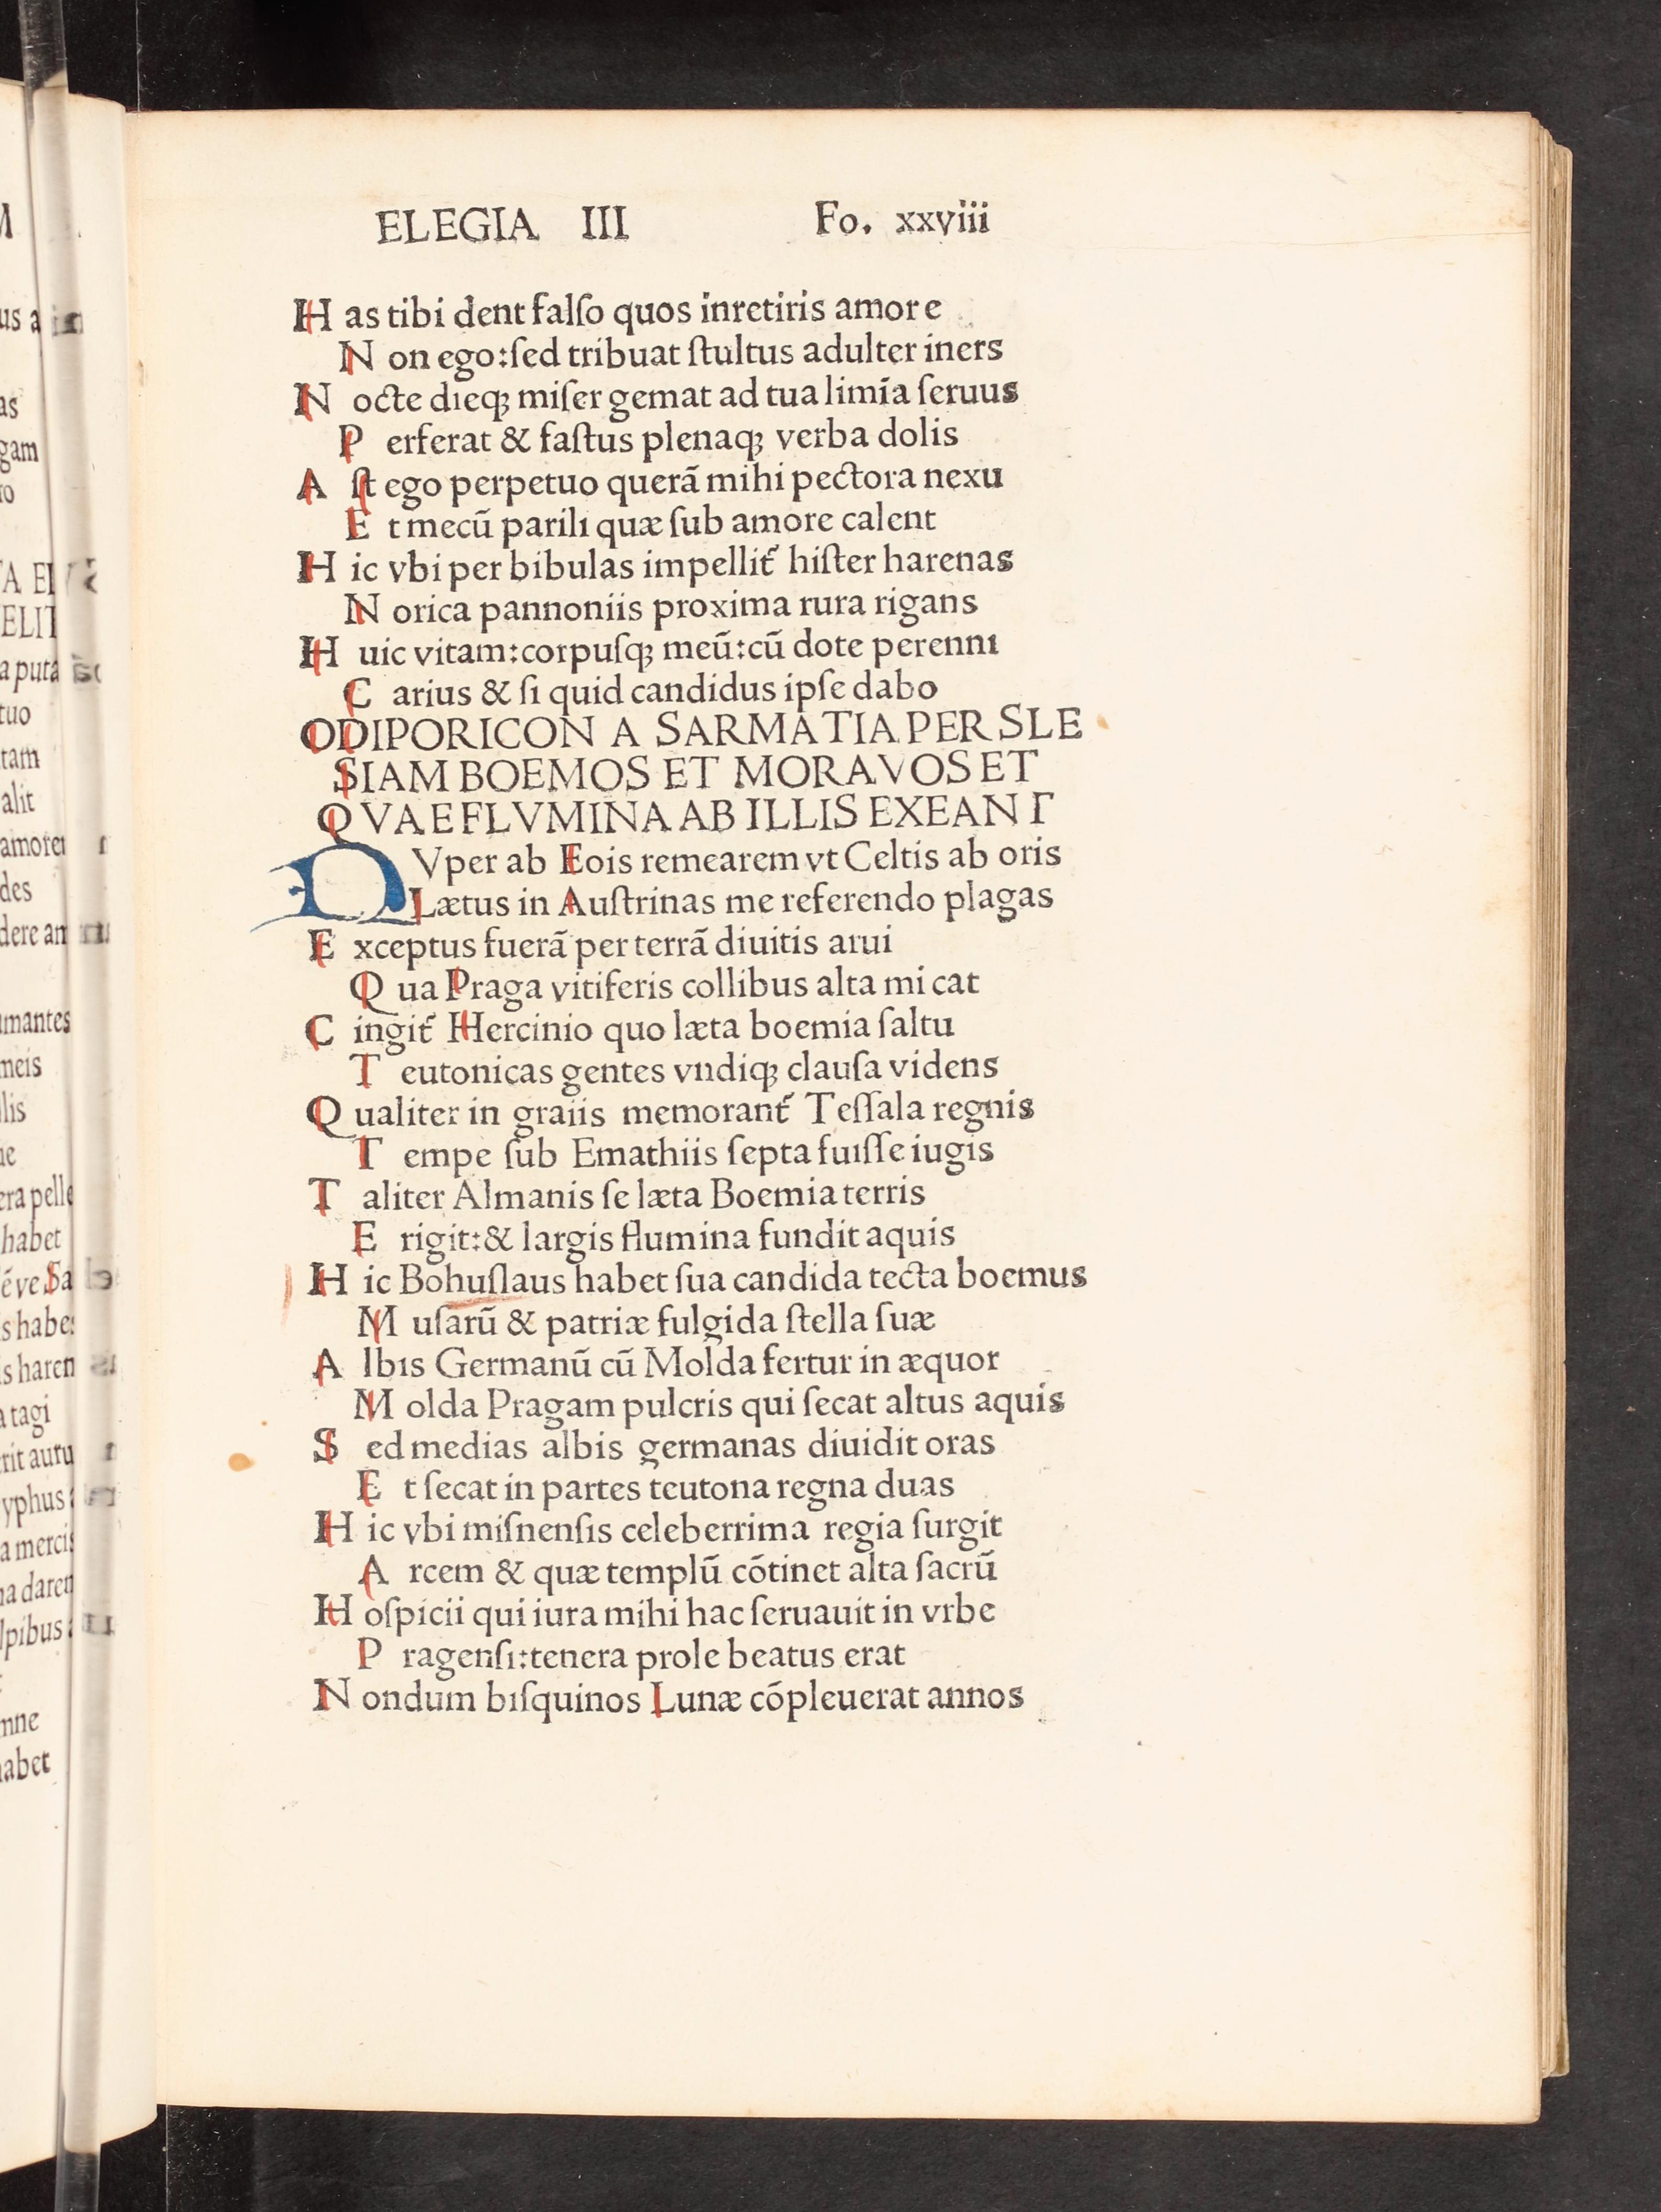 ELEGIA III Fo. xxviii
Has tibi dent falſo quos inretiris amore
Non ego:ſed tribuat ſtultus adulter iners
Nocte dieqꝫ miſer gemat ad tua limīa ſeruus
Perferat & faſtus plenaqꝫ verba dolis
Aſt ego perpetuo querā mihi pectora nexu
Et mecū parili quæ ſub amore calent
Hic vbi per bibulas impellit᷑ hiſter harenas
Norica pannoniis proxima rura rigans
Huic vitam:corpuſqꝫ meū:cū dote perenni
Carius & ſi quid candidus ipſe dabo
ODIPORICON A SARMATIA PER SLE
SIAM BOEMOS ET MORAVOS ET
QVAE FLVMINA AB ILLIS EXEANT
NVper ab Eois remearem vt Celtis ab oris
Lætus in Auſtrinas me referendo plagas
Exceptus fuerā per terrā diuitis arui
Qua Praga vitiferis collibus alta micat
Cingit᷑ Hercinio quo læta boemia ſaltu
Teutonicas gentes vndiqꝫ clauſa videns
Qualiter in graiis memorant᷑ Teſſala regnis
Tempe ſub Emathiis ſepta fuiſſe iugis
Taliter Almanis ſe læta Boemia terris
Erigit:& largis flumina fundit aquis
Hic Bohuſlaus habet ſua candida tecta boemus
Muſarū & patriæ fulgida ſtella ſuæ
Albis Germanū cū Molda fertur in æquor
Molda Pragam pulcris qui ſecat altus aquis
Sed medias albis germanas diuidit oras
Et ſecat in partes teutona regna duas
Hic vbi miſnenſis celeberrima regia ſurgit
Arcem & quæ templū cōtinet alta ſacrū
Hoſpicii qui iura mihi hac ſeruauit in vrbe
Pragenſi:tenera prole beatus erat
Nondum biſquinos Lunæ cōpleuerat annos